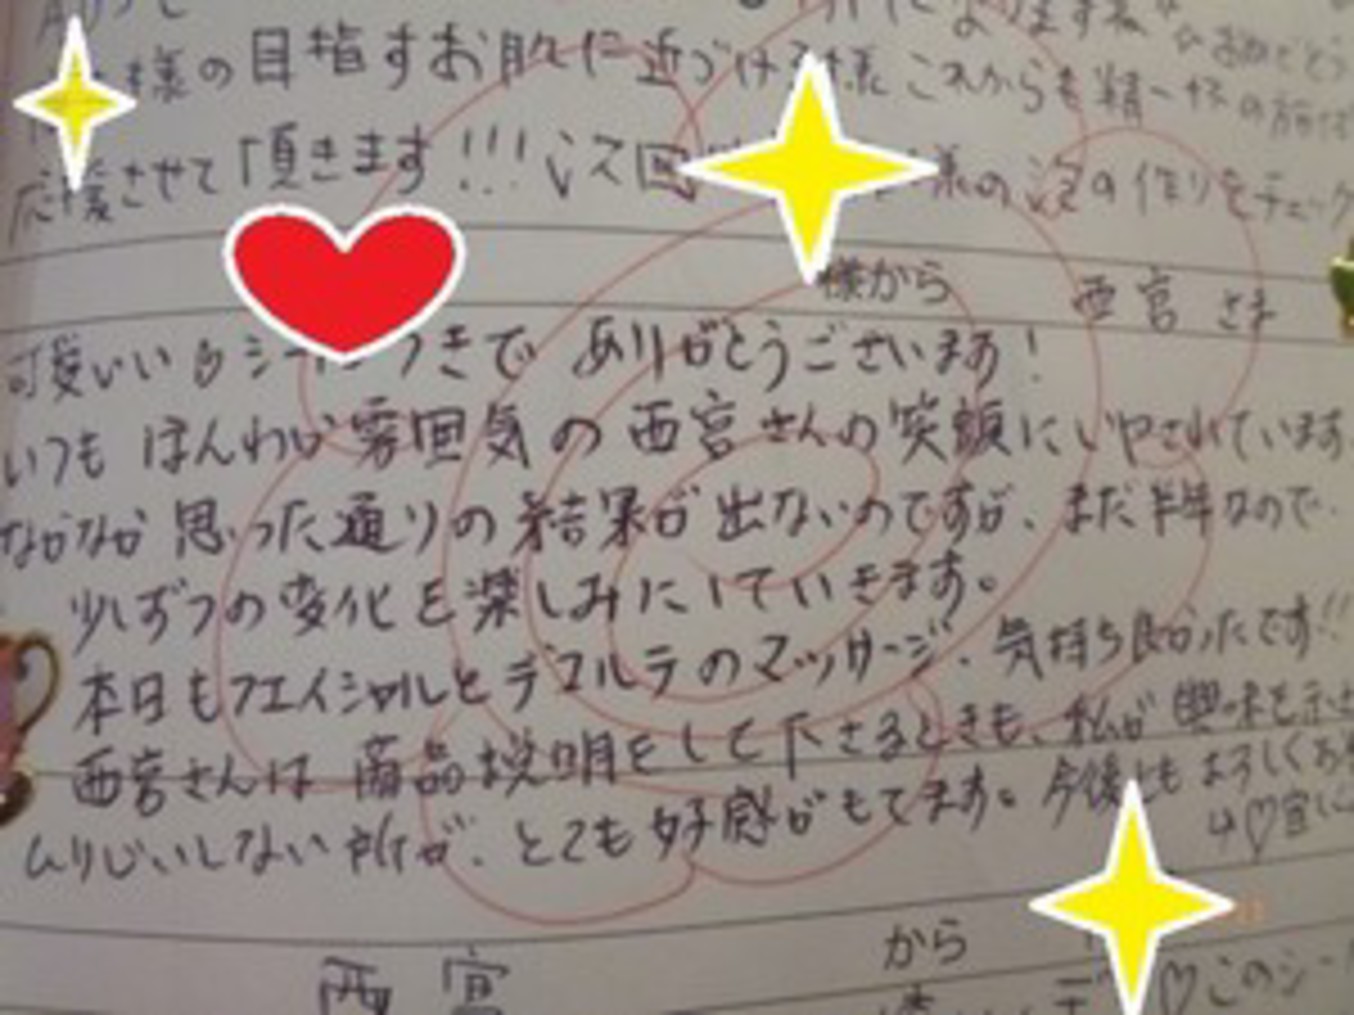 様の目指すお肌に近づける様 これからも精一杯の施術
応援させて頂きます!!! 次回 様の泡の作りをチェック
様から 西宮 さま
可愛いい つきで ありがとうございます!
いつも ほんわか雰囲気の西宮さんの笑顔にいやされています。
なかなか思った通りの結果が出ないのですが、まだ半年なので、
少しずつの変化を楽しみにしていきます。
本日もフェイシャルとデコルテのマッサージ、気持ち良かったです!!
西宮さんは商品説明をして下さるときも、私が興味を示さ
ムリじいしない所が、とても好感がもてます。今後とも よろしくお
から
西宮
♡このシー